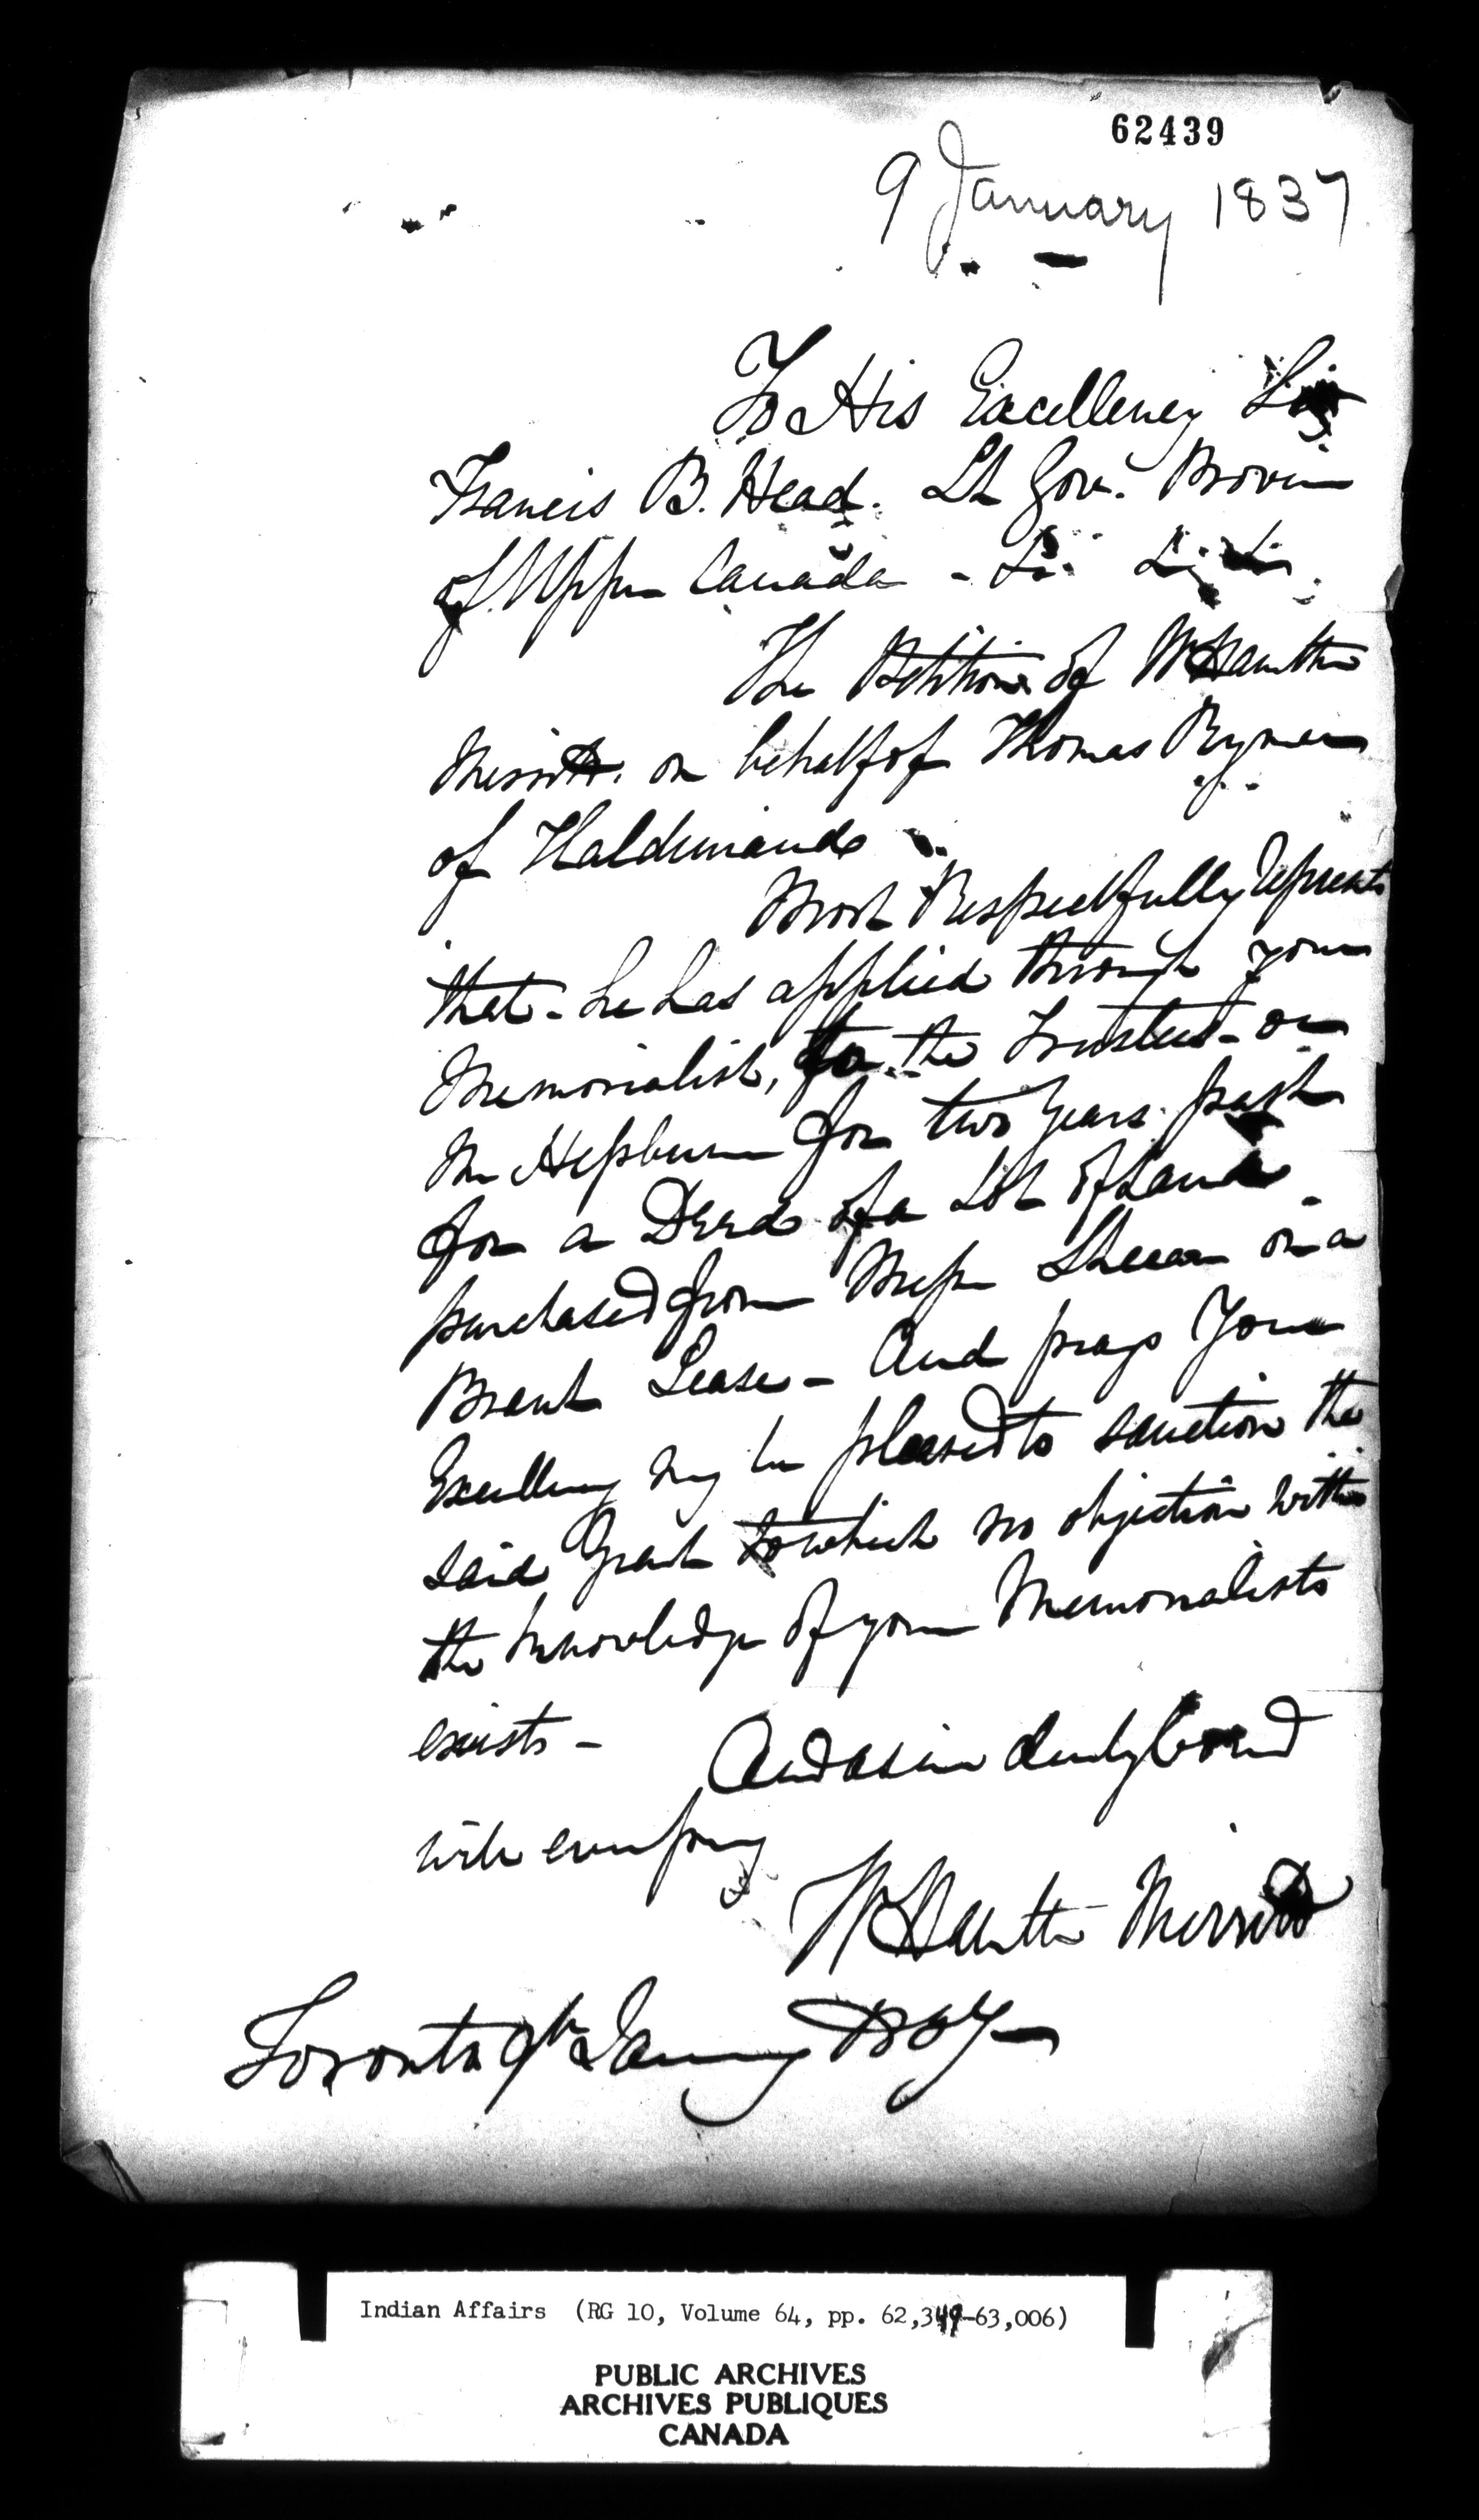 62439
9 January 1837
To His Excellency Sir
Francis B. Head. Lt Gov. Provin
of Upper Canada - &c. &c &c.
The Petition of W Hamilton
Merritt. on behalf of Thomas Ryman
of Haldimand
Most Respectfully Represents
that - he has applied through your
Memorialist, to the Trustees - or
Mr Hepburn for two Years past
for a Deed of a Lot of Land
purchased from Messrs on a
Brant Lease - And prays Your
Excellency may be pleased to sanction the
said Grant to which no objection with
the knowledge of your Memorialists
exists -
And as in duty bound
will ever pray
W Hamilton Merritt
Toronto 9th January 1837
Indian Affairs (RG 10, Volume 64, pp. 62,349-63,006)
PUBLIC ARCHIVES
ARCHIVES PUBLIQUES
CANADA